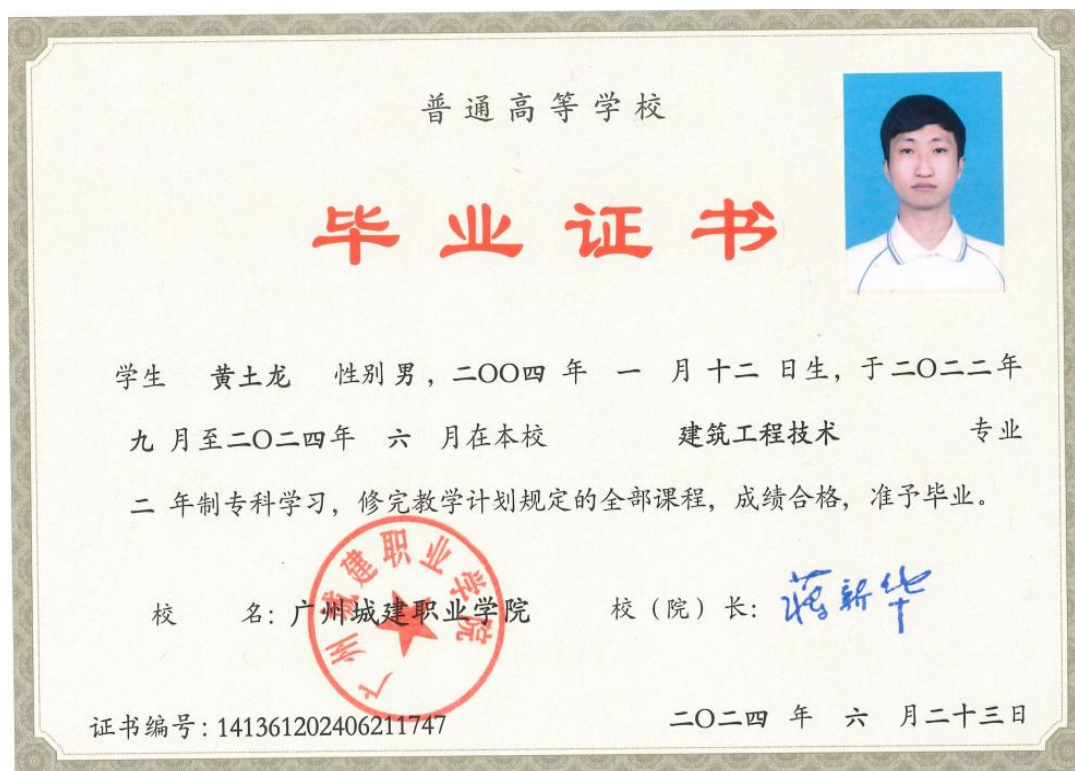 普通高等学校
毕业证书
学生 黄土龙 性别男，二〇〇四 年 一 月 十二 日生，于二〇二二年
九 月至二〇二四年 六 月在本校 建筑工程技术 专业
二 年制专科学习，修完教学计划规定的全部课程，成绩合格，准予毕业。
广州城建职业学院
校 名：广州城建职业学院 校（院）长：蒋新华
证书编号：141361202406211747 二〇二四 年 六 月二十三日